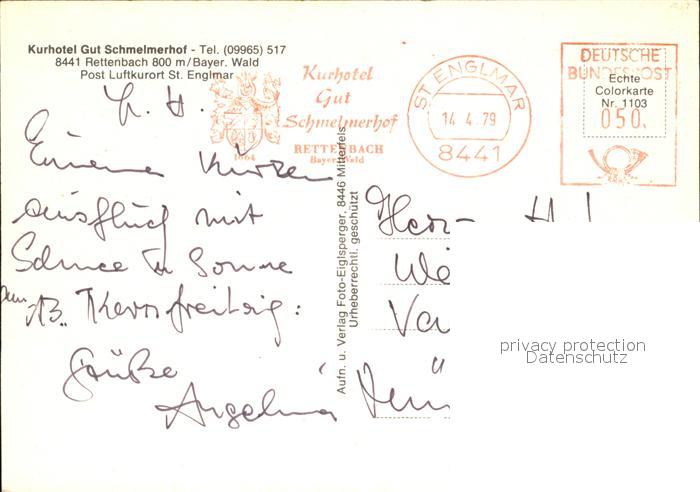 Kurhotel Gut Schmelmerhof - Tel. (09965) 517
8441 Rettenbach 800 m/Bayer. Wald
Post Luftkurort St. Englmar
Kurhotel
Gut
Schmelmerhof
RETTENBACH
Bayer. Wald
1664
ST. ENGLMAR
14.4.79
8441
DEUTSCHE
BUNDESPOST
Echte
Colorkarte
Nr. 1103
050
L. H.
Einen kurzen
ausflug mit
Schnee u Sonne
Grüße
Angelina
Aufn. u. Verlag Foto-Eiglsperger, 8446 Mitterfels
Urheberrechtl. geschützt
Herr H
We
Va
privacy protection
Datenschutz